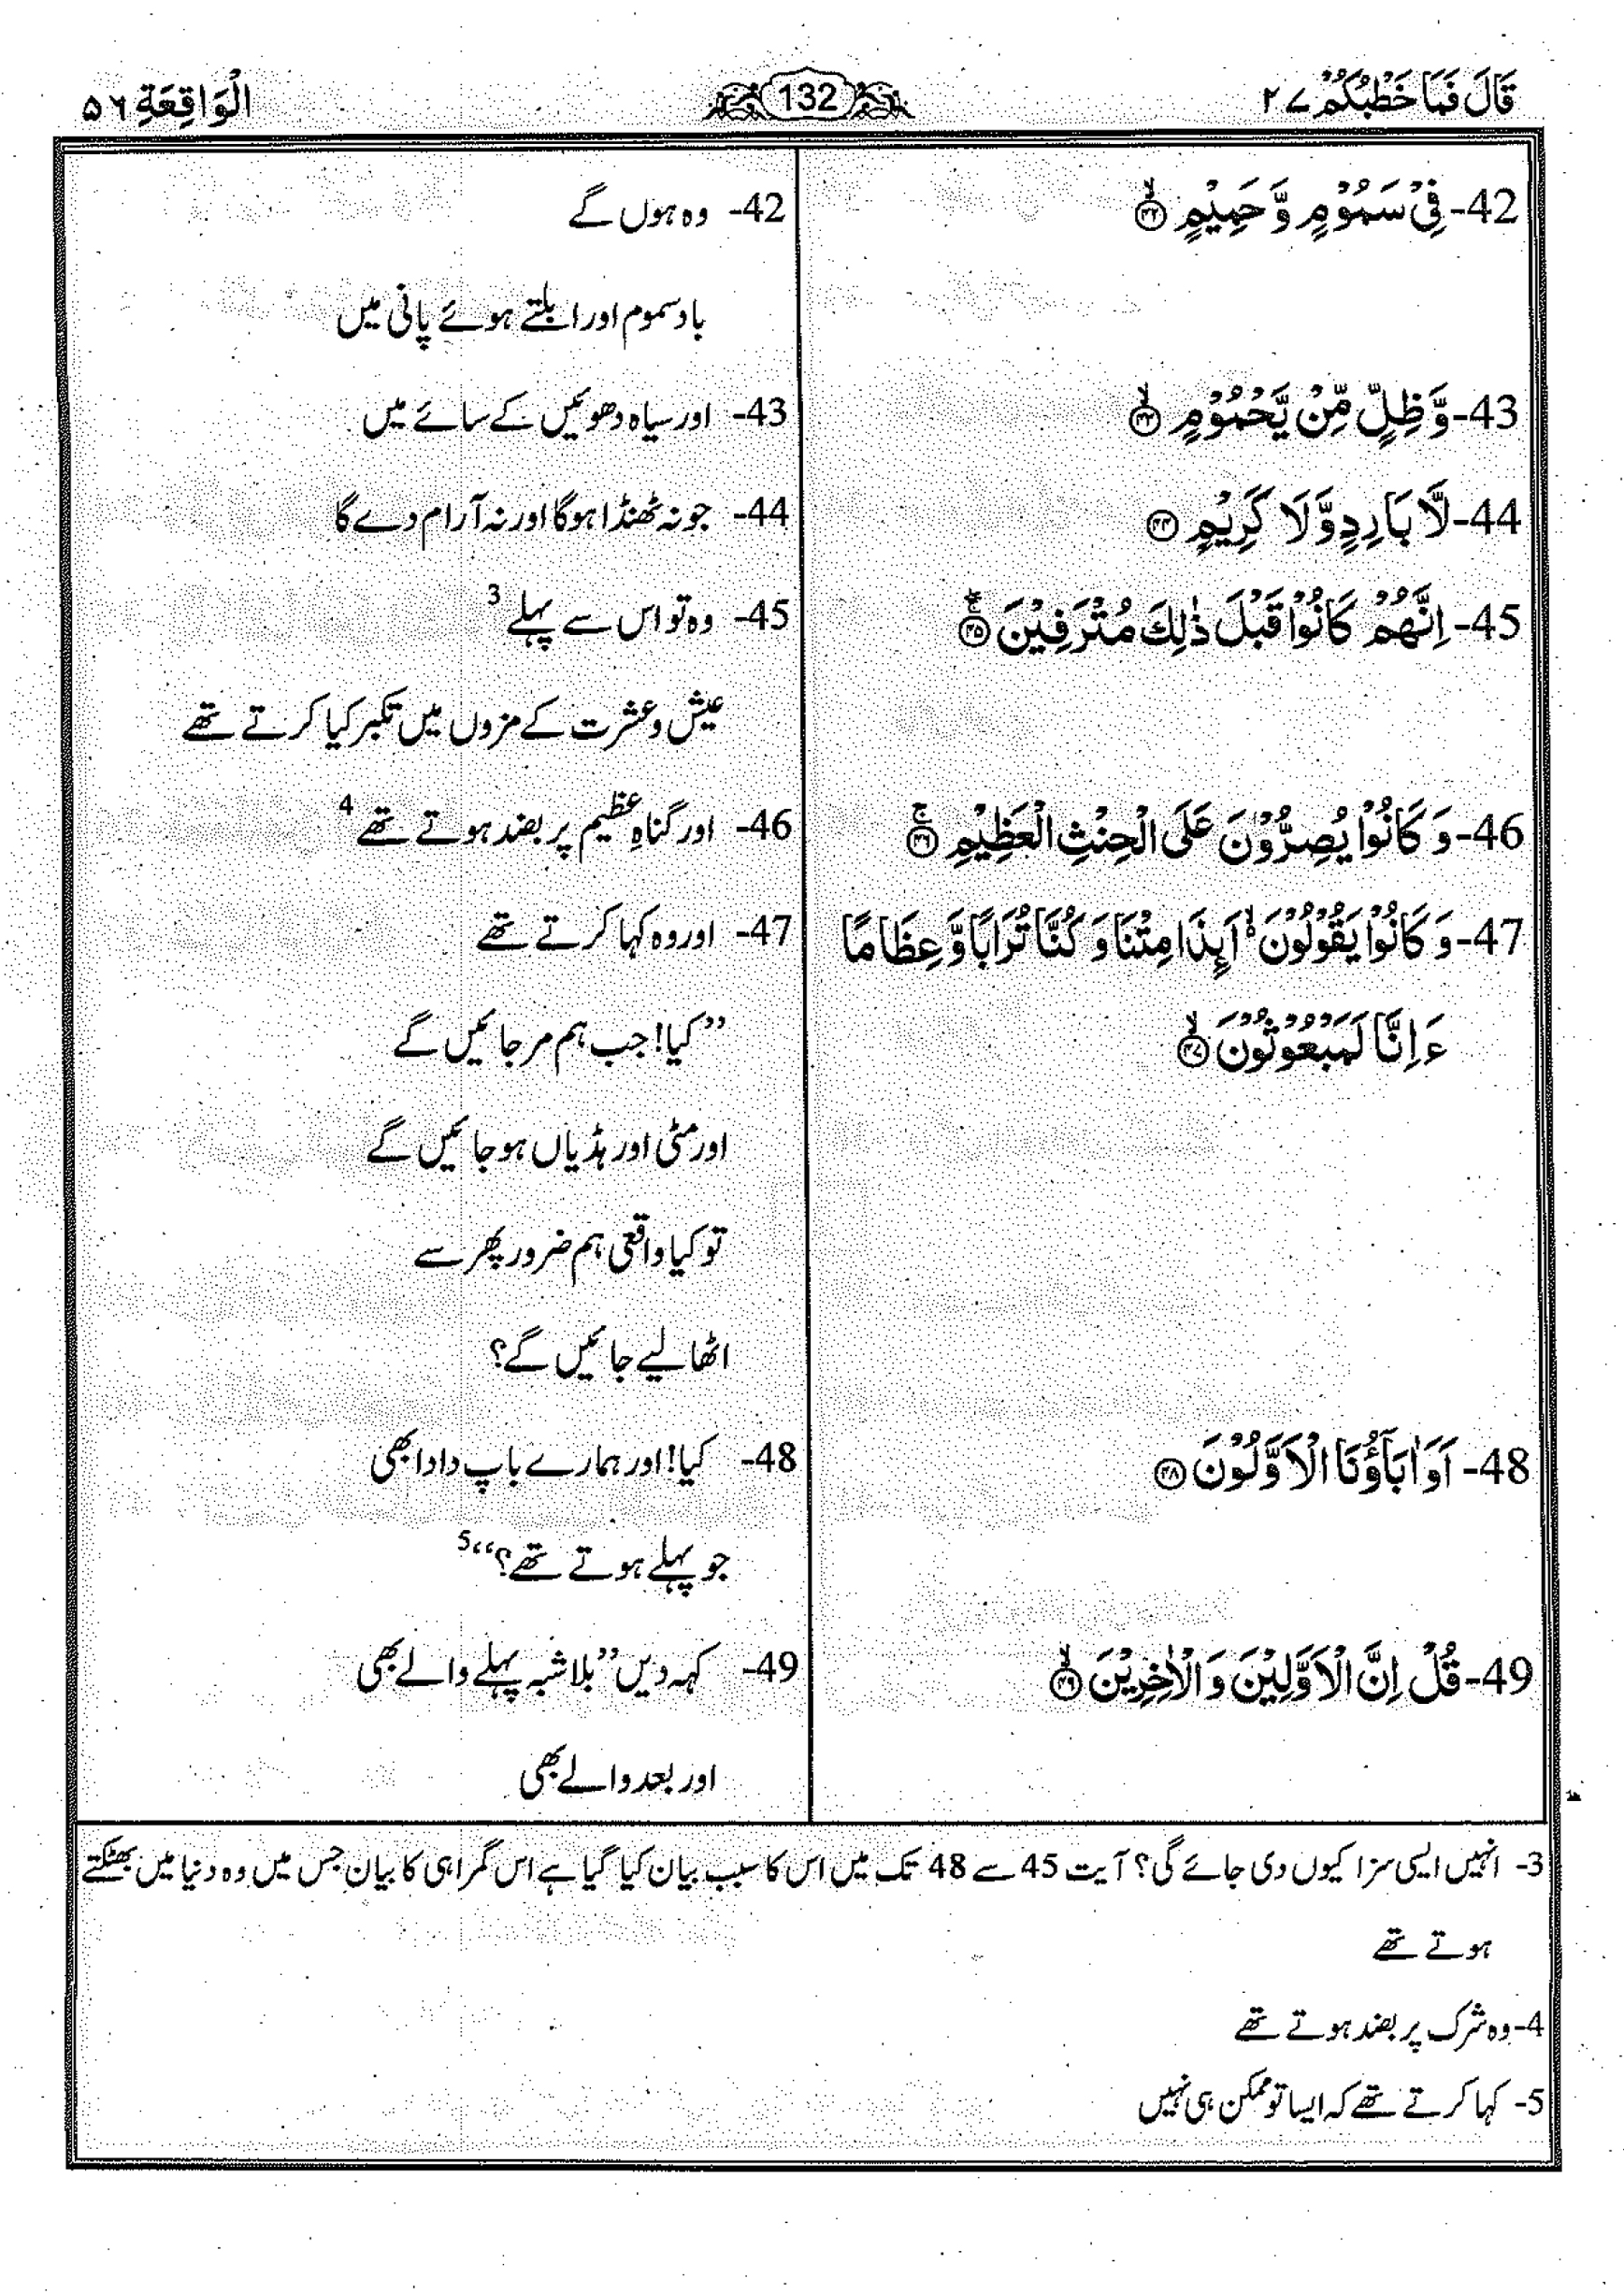 قَالَ فَمَا خَطْبُكُمْ ٢٧
132
الْوَاقِعَةِ ٥٦
42- فِيْ سَمُوْمٍ وَّ حَمِيْمٍ ۙ﴿٤٢﴾
43- وَّ ظِلٍّ مِّنْ يَّحْمُوْمٍ ۙ﴿٤٣﴾
44- لَّا بَارِدٍ وَّ لَا كَرِيْمٍ ﴿٤٤﴾
45- اِنَّهُمْ كَانُوْا قَبْلَ ذٰلِكَ مُتْرَفِيْنَ ۚۖ﴿٤٥﴾
46- وَ كَانُوْا يُصِرُّوْنَ عَلَى الْحِنْثِ الْعَظِيْمِ ۚ﴿٤٦﴾
47- وَ كَانُوْا يَقُوْلُوْنَ ۙ اَىِٕذَا مِتْنَا وَ كُنَّا تُرَابًا وَّ عِظَامًا
ءَاِنَّا لَمَبْعُوْثُوْنَ ۙ﴿٤٧﴾
48- اَوَ اٰبَآؤُنَا الْاَوَّلُوْنَ ﴿٤٨﴾
49- قُلْ اِنَّ الْاَوَّلِيْنَ وَ الْاٰخِرِيْنَ ۙ﴿٤٩﴾
42- وہ ہوں گے
بادِ سموم اور ابلتے ہوئے پانی میں
43- اور سیاہ دھوئیں کے سائے میں
44- جو نہ ٹھنڈا ہوگا اور نہ آرام دے گا
45- وہ تو اس سے پہلے 3
عیش و عشرت کے مزوں میں تکبر کیا کرتے تھے
46- اور گناہِ عظیم پر بضد ہوتے تھے 4
47- اور وہ کہا کرتے تھے
”کیا! جب ہم مر جائیں گے
اور مٹی اور ہڈیاں ہو جائیں گے
تو کیا واقعی ہم ضرور پھر سے
اٹھا لیے جائیں گے؟
48- کیا! اور ہمارے باپ دادا بھی
جو پہلے ہوتے تھے؟“ 5
49- کہہ دیں ”بلاشبہ پہلے والے بھی
اور بعد والے بھی
3- انہیں ایسی سزا کیوں دی جائے گی؟ آیت 45 سے 48 تک میں اس کا سبب بیان کیا گیا ہے اس گمراہی کا بیان جس میں وہ دنیا میں بھٹکتے
ہوتے تھے
4- وہ شرک پر بضد ہوتے تھے
5- کہا کرتے تھے کہ ایسا تو ممکن ہی نہیں